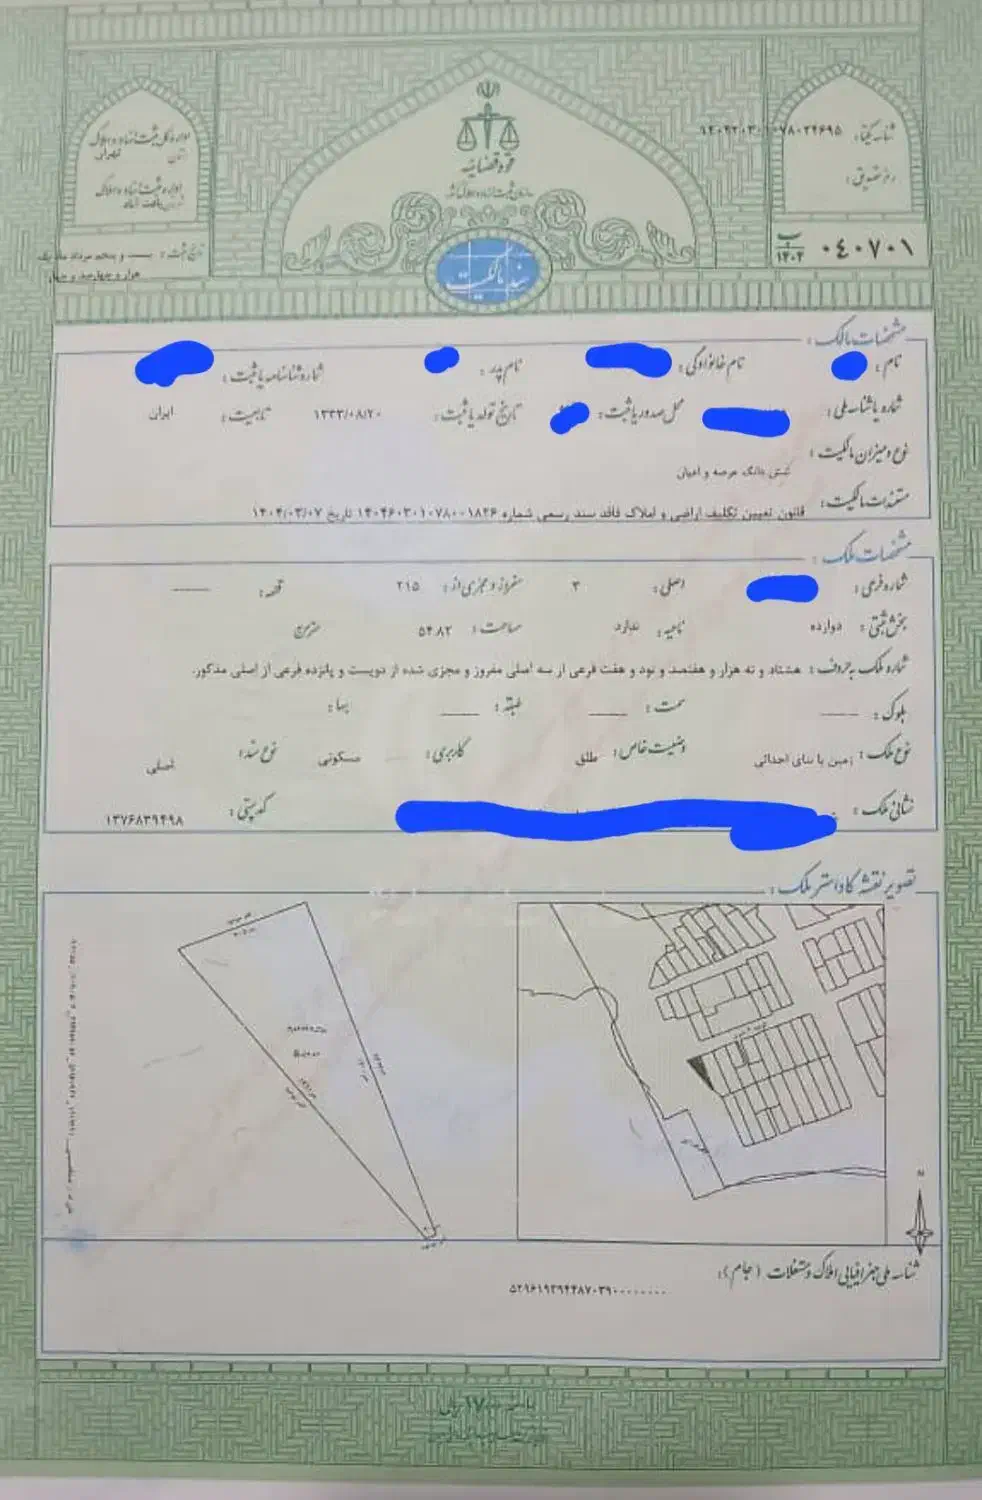 اداره کل ثبت اسناد و املاک
استان تهران
اداره ثبت اسناد و املاک
قوه قضائیه
سازمان ثبت اسناد و املاک کشور
شناسه یکتا:
رمز تصدیق:
ب
۱۴۰۴
۰۴۰۷۰۱
تاریخ ثبت: بیست و پنجم مرداد ماه یک هزار و چهارصد و چهار
سند مالکیت
مشخصات مالک:
نام: نام خانوادگی: نام پدر: شماره شناسنامه یا ثبت:
شماره یا شناسه ملی: محل صدور یا ثبت: تاریخ تولد یا ثبت: ۱۳۳۳/۰۸/۲۰ تابعیت: ایران
نوع و میزان مالکیت:
شش دانگ عرصه و اعیان
مستندات مالکیت: قانون تعیین تکلیف اراضی و املاک فاقد سند رسمی شماره ۱۴۰۴۶۰۳۰۱۰۷۸۰۰۱۸۲۶ تاریخ ۱۴۰۴/۰۳/۰۷
مشخصات ملک:
شماره فرعی: اصلی: ۳ مفروز و مجزی از: ۲۱۵ قطعه: ——
بخش ثبتی: دوازده ناحیه: ندارد مساحت: ۵۴.۸۲ مترمربع
شماره ملک به حروف: هشتاد و نه هزار و هفتصد و نود و هفت فرعی از سه اصلی مفروز و مجزی شده از دویست و پانزده فرعی از اصلی مذکور.
بلوک: —— سمت: —— طبقه: —— بها:
نوع ملک: زمین با بنای احداثی وضعیت خاص: طلق کاربری: مسکونی نوع سند: اصلی
نشانی ملک: کد پستی: ۱۳۷۶۸۳۹۴۹۸
تصویر نقشه کاداستر ملک:
N
شناسه ملی جغرافیایی املاک و مستغلات (جام):